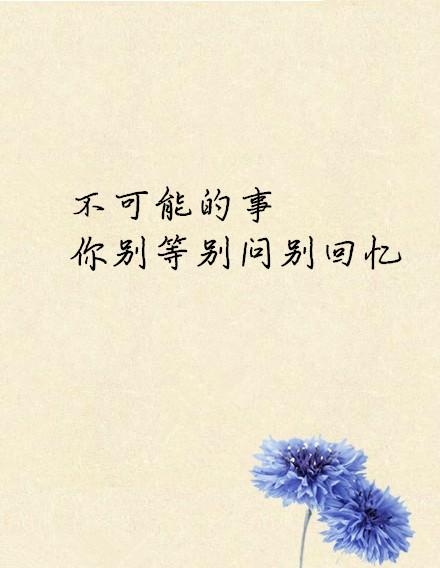 不可能的事
你别等别问别回忆